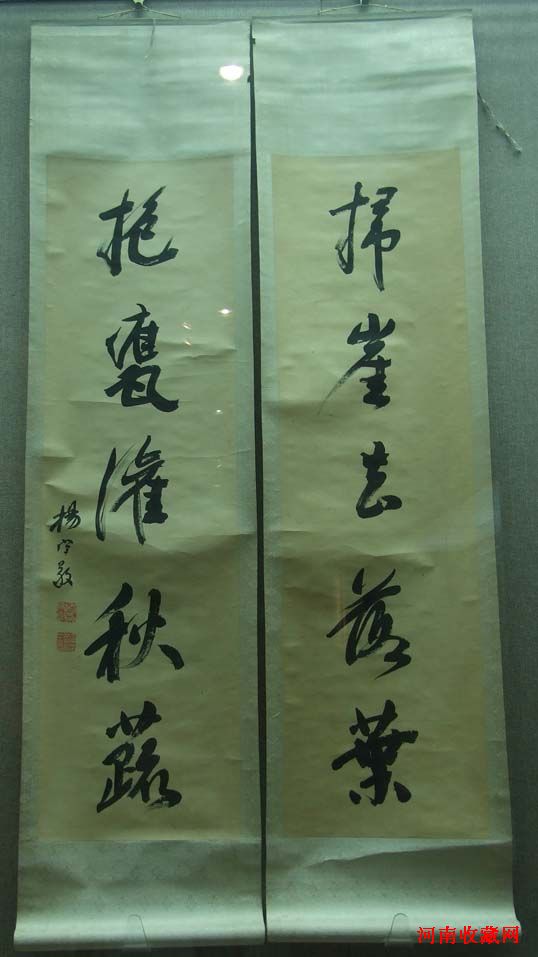 掃崖去落葉
抱甕灌秋蔬
楊守敬
河南收藏网